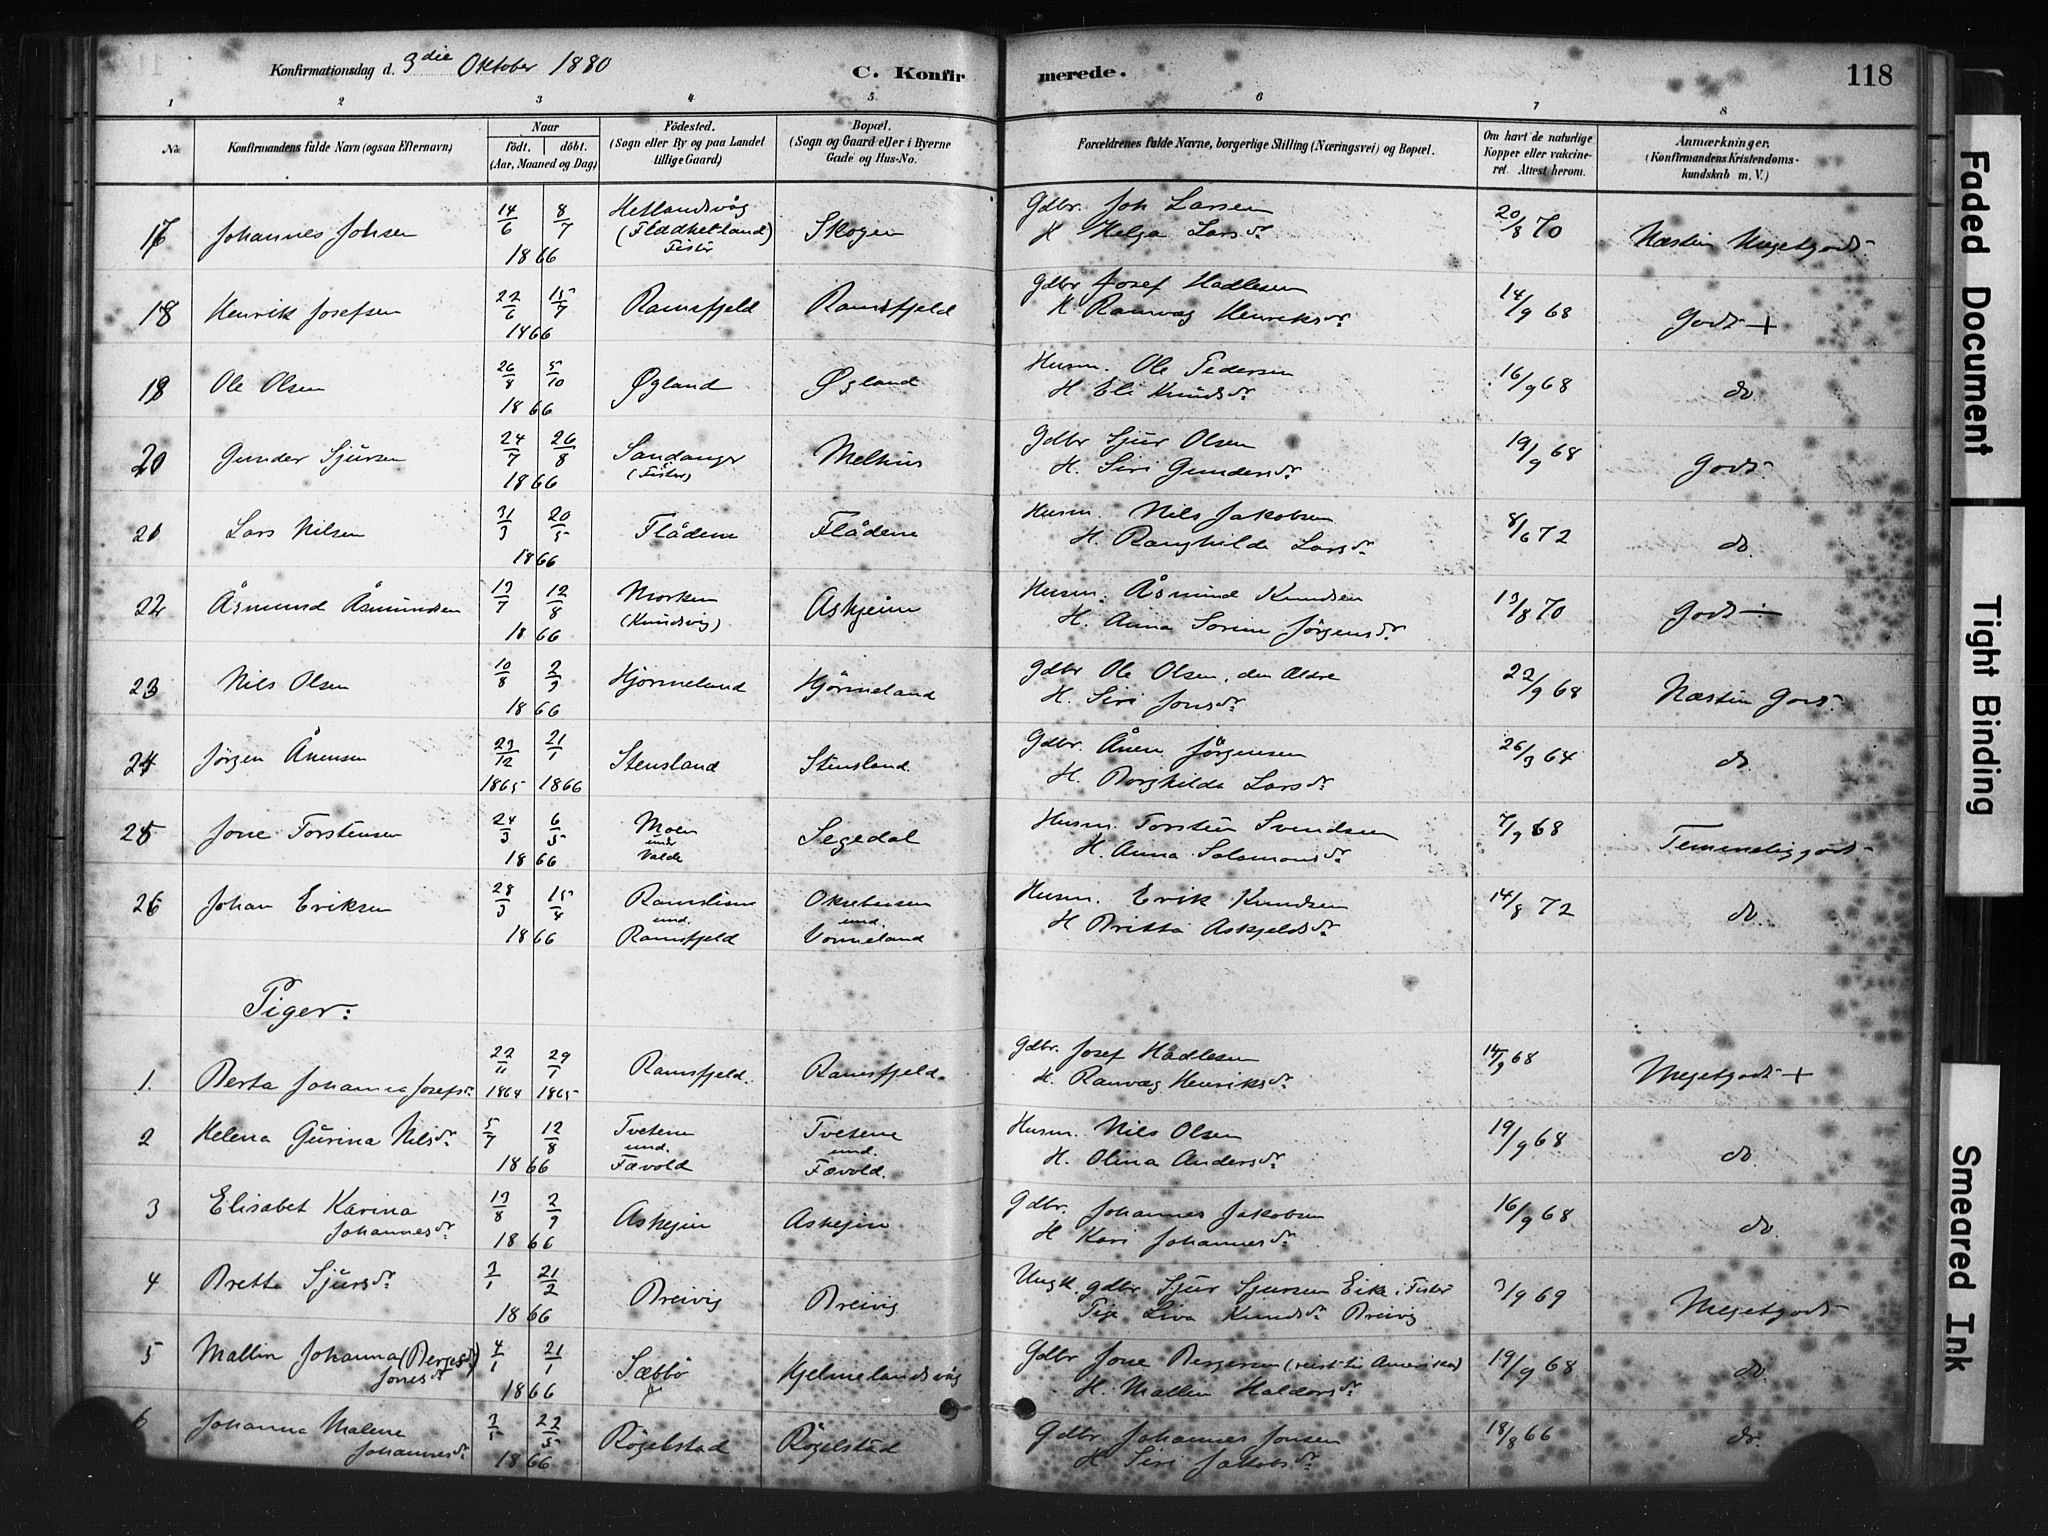 Konfirmationsdag d. 3die Oktober 1880
C. Konfirmerede.
118
1 2 3 4 5 6 7 8
No.
Konfirmandens fulde Navn (ogsaa Efternavn)
Naar
födt. döbt.
(Aar, Maaned og Dag)
Födested.
(Sogn eller By og paa Landet
tillige Gaard)
Bopæl.
(Sogn og Gaard eller i Byerne
Gade og Hus-No.
Forældrenes fulde Navne, borgerlige Stilling (Næringsvei) og Bopæl.
Om havt de naturlige
Kopper eller vakcine-
ret. Attest herom.
Anmærkninger.
(Konfirmandens Kristendoms-
kundskab m. V.)
17 Johannes Johsen 14/6 8/7 1866 Hetlandsvåg (Fladhetland) Fister Skogen Gdbr. Joh Larsen H Helga Larsdr. 20/8 70 Næsten Megetgodt
18 Henrik Josefsen 22/6 15/7 1866 Ramsfjeld Ramsfjeld Gdbr Josef Hadlesen H Ranvæg Henriksdr. 14/9 68 Godt +
19 Ole Olsen 26/8 5/10 1866 Øgland Øgland Husm. Ole Pedersen H. Eli Knudsdr. 16/9 68 do
20 Gunder Sjursen 24/7 26/8 1866 Sandanger (Fister) Melhus Gdbr Sjur Olsen H. Siri Gundersdr. 19/9 68 Godt
21 Lars Nilsen 31/3 20/5 1866 Flådene Flådene Husm. Nils Jakobsen H. Ranghilda Larsdr. 8/6 72 do.
22 Åsmund Åsmundsen 13/7 12/8 1866 Morken (Knudsvig) Askjeim Husm. Åsmund Knudsen H. Anna Serine Jørgensdr. 13/8 70 Godt ÷
23 Nils Olsen 10/8 2/9 1866 Hjörmeland Hjörmeland Gdbr Ole Olsen, den Ældre H. Siri Jonsdr. 22/9 68 Næsten Godt.
24 Jörgen Ånensen 23/12 1865 21/1 1866 Stensland Stensland. Gdbr. Ånen Jörgensen H. Borghilda Larsdr. 26/3 64 do
25 Jone Torstensen 24/3 6/5 1866 Moen und Valde Segedal Husm. Torsten Svendsen H. Anna Salamonsdr. 7/9 68 Temmeliggodt
26 Johan Eriksen 28/3 15/4 1866 Ramsliene und. Ramsfjeld Oksebasen und. Vormeland Husm. Erik Knudsen H Britta Askjeldsdr. 14/8 72 do.
Piger:
1. Berta Johanna Josefsdr. 22/11 1864 29/1 1865 Ramsfjeld. Ramsfjeld. Gdbr. Josef Hadlesen H. Ranvæg Henriksdr. 14/9 68 Megetgodt +
2 Helena Gurina Nilsdr. 5/7 12/8 1866 Tvetene und. Fævold Tvetene und. Fævold. Husm. Nils Olsen H. Olina Andersdr. 19/9 68 do.
3 Elisabet Karina Johannesdr. 13/8 2/9 1866 Askjein Askjein Gdbr. Johannes Jakobsen H Kari Johannesdr. 16/9 68 do.
4 Bretta Sjursdr. 3/1 21/2 1866 Breivig Breivig Ungk. gdbr Sjur Sjursen Eike i Fister Pige Liva Knudsdr. Breivig 3/9 69 Megetgodt
5 Mallin Johanna (Bergesdr) Jonesdr. 4/1 21/1 1866 Sæbbö Hjelmelandsvåg Gdbr Jone Bergersen (reist til Amerika) H. Mallin Haldorsdr. 19/9 68 do.
6 Johanna Malene Johannesdr. 3/5 22/5 1866 Rögelstad Rögelstad Gdbr Johannes Jonsen H Siri Jakobsdr. 18/8 66 do.
Faded Document
Tight Binding
Smeared Ink